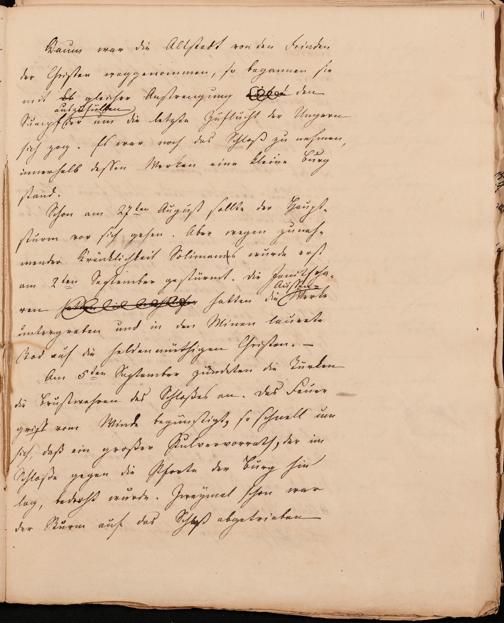 11
Kaum war die Altstadt von den Feinden
der Christen weggenommen, so begannen sie
mit gleicher Anstrengung den
auszufüllen
Sumpf der um die letzte Zuflucht der Ungern
sich zog. Es war noch das Schloß zu nehmen,
innerhalb dessen Werken eine kleine Burg
stand.
Schon am 27ten August sollte der Haupt-
sturm vor sich gehen. Aber wegen zuneh-
mender Kränklichkeit Solimans wurde erst
am 2ten September gestürmt. Die Janitscha-
ren hatten die Werke
untergraben und in den Minen lauerte
Tod auf die heldenmüthigen Christen. –
Am 5ten September zündeten die Türken
die Brustwehren des Schloßes an. Das Feuer
griff vom Winde begünstigt, so schnell um
sich, daß ein großer Pulvervorrath, der im
Schloße gegen die Pforte der Burg hin
lag, bedroht wurde. Zweymal schon war
der Sturm auf das Schloß abgetrieben